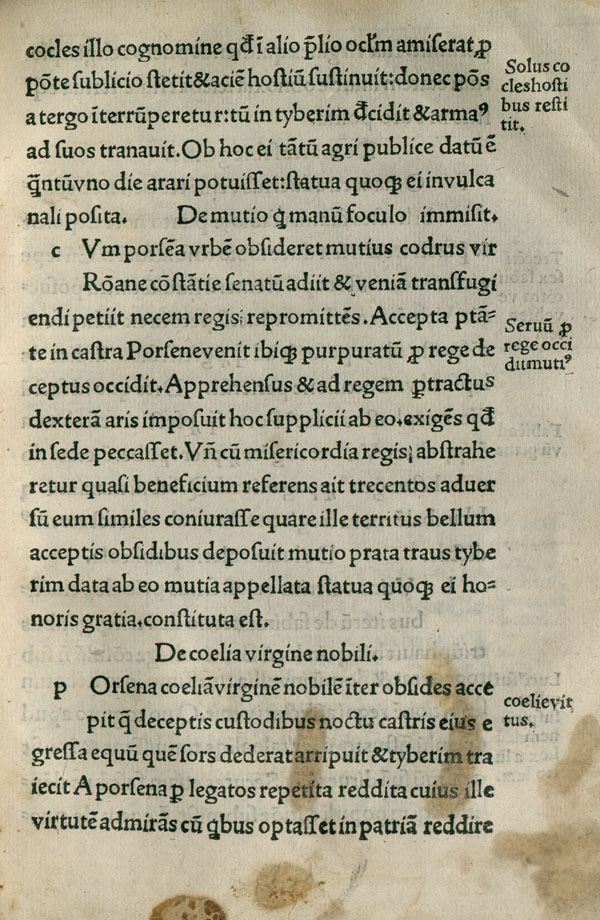 cocles illo cognomine qđ ī alio p̄lio ocl'm amiserat ꝓ
pōte sublicio stetit & aciē hostiū sustinuit: donec pōs
a tergo īterrūperetur: tū in tyberim đcidit & armaꝰ
ad suos tranauit. Ob hoc ei tātū agri publice datū ē
q̄ntū vno die arari potuisset: statua quoqꝫ ei in vulca
nali posita. De mutio q̇ manū foculo immisit.
c Vm porsēa vrbē obsideret mutius codrus vir
Rōane cōstātie senatū adiit & veniā transfugi
endi petiit necem regis; repromittēs. Accepta ptā=
te in castra Porsene venit ibiqꝫ purpuratū ꝓ rege de
ceptus occidit. Apprehensus & ad regem ꝑtractus
dexterā aris imposuit hoc supplicii ab eo. exigēs qđ
in sede peccasset. Vn̄ cū misericordia regis; abstrahe
retur quasi beneficium referens ait trecentos aduer
sū eum similes coniurasse quare ille territus bellum
acceptis obsidibus deposuit mutio prata traus tybe
rim data ab eo mutia appellata statua quoqꝫ ei ho=
noris gratia. constituta est.
De coelia virgine nobili.
p Orsena coeliā virginē nobilē īter obsides acce
pit q̄ deceptis custodibus noctu castris eius e
gressa equū quē sors dederat arripuit & tyberim tra
iecit A porsena ꝑ legatos repetita reddita cuius ille
virtutē admirās cū q̇bus optasset in patriā reddire
Solus co
cles hosti
bus resti
tit.
Seruū ꝓ
rege occi
dit mutiꝰ
coelie vir
tus.